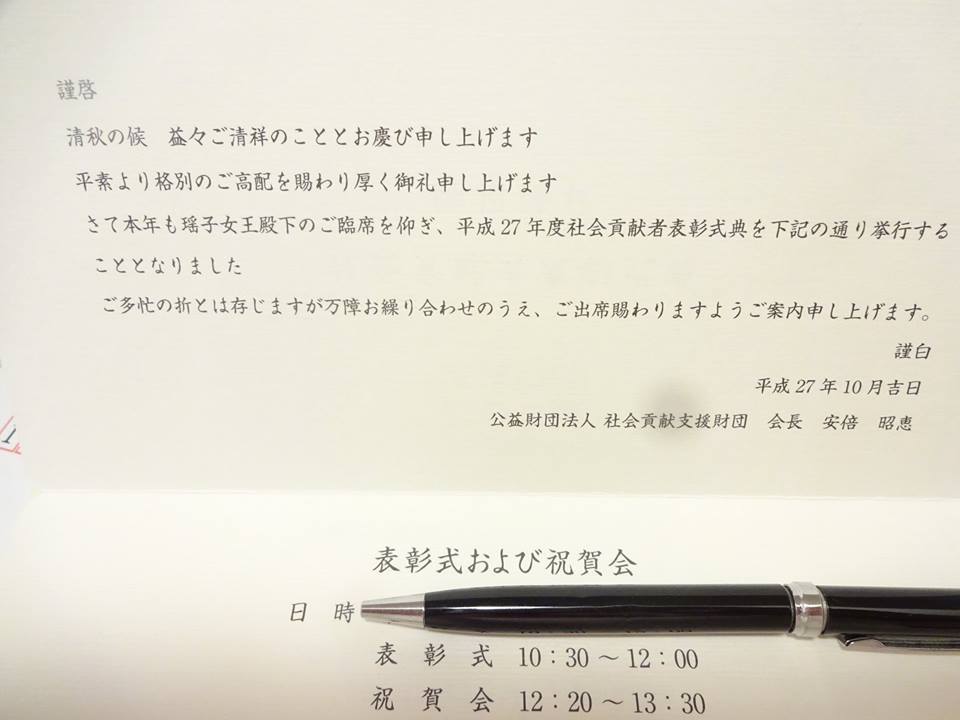 謹啓
清秋の候　益々ご清祥のこととお慶び申し上げます
平素より格別のご高配を賜わり厚く御礼申し上げます
さて本年も瑶子女王殿下のご臨席を仰ぎ、平成27年度社会貢献者表彰式典を下記の通り挙行する
こととなりました
ご多忙の折とは存じますが万障お繰り合わせのうえ、ご出席賜わりますようご案内申し上げます。
謹白
平成27年10月吉日
公益財団法人 社会貢献支援財団　会長　安倍　昭恵
表彰式および祝賀会
日　時
表　彰　式　10：30～12：00
祝　賀　会　12：20～13：30